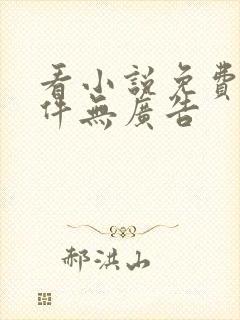 看小說免費
件無廣告
郝洪山